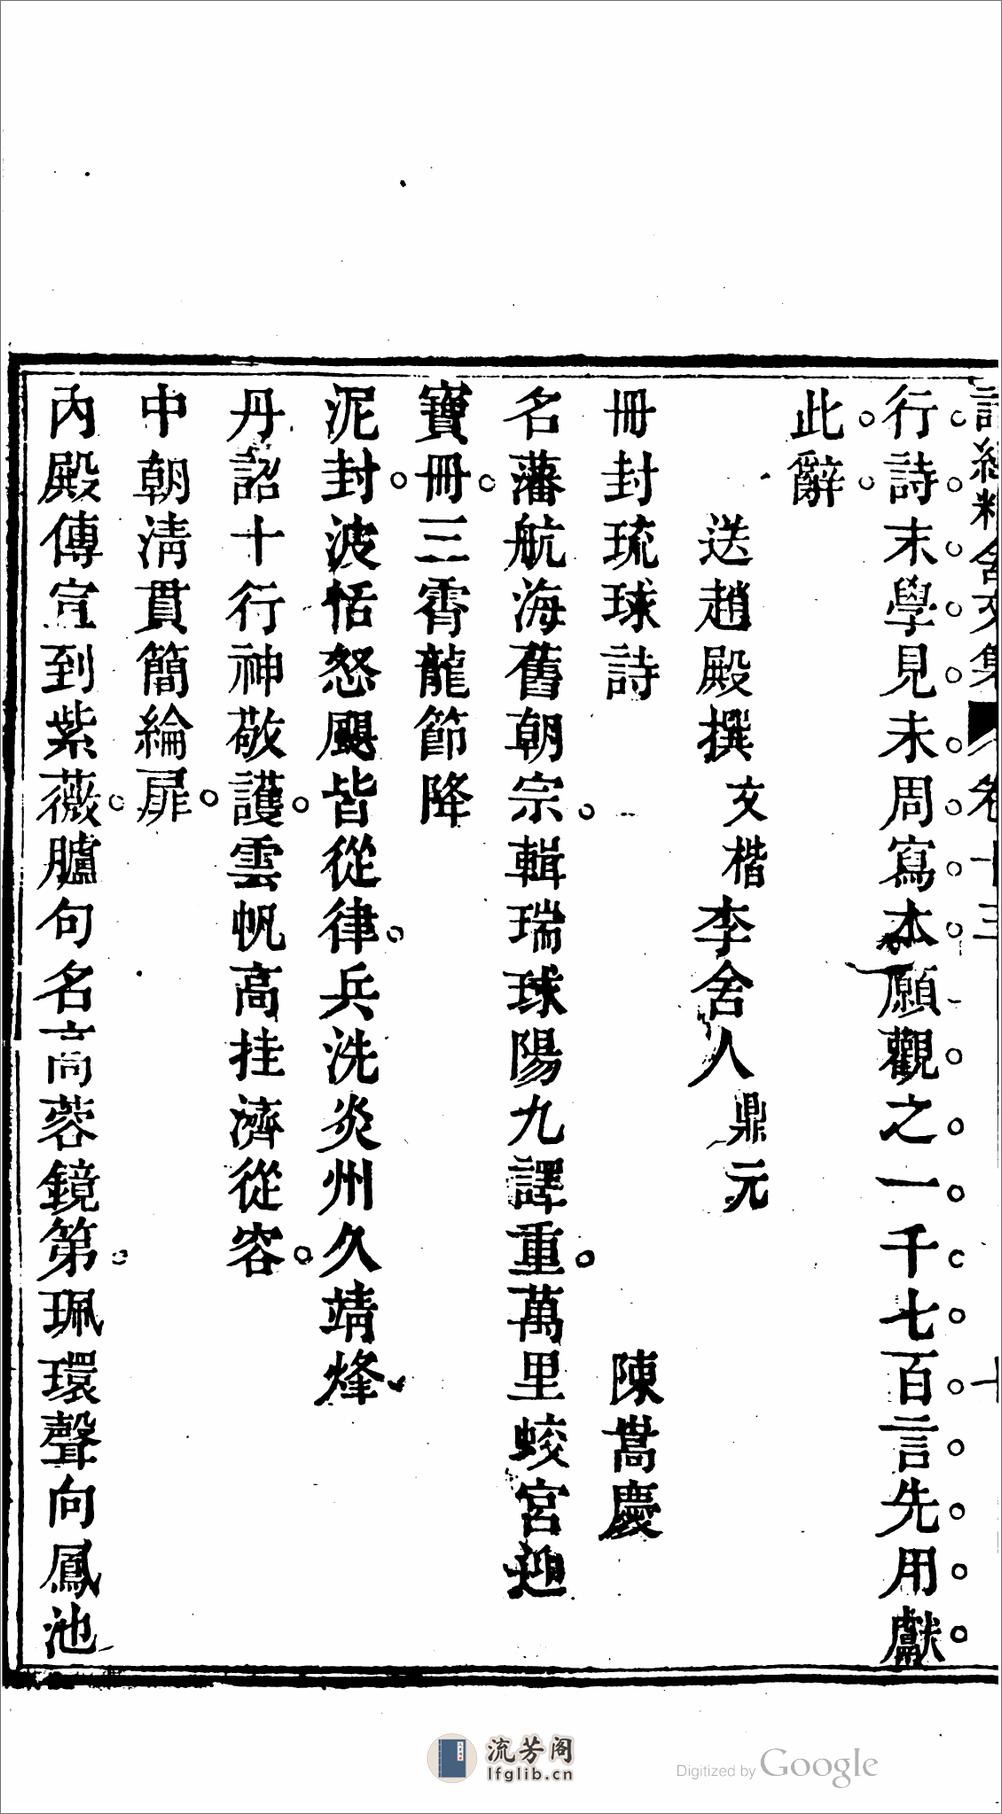 詁經精舍文集 卷十三 十
行詩末學見未周寫本願觀之一千七百言先用獻
此辭
送趙殿撰文楷李舍人鼎元
冊封琉球詩 陳嵩慶
名藩航海舊朝宗輯瑞球陽九譯重萬里蛟宮迎
寶冊三霄龍節降
泥封波恬怒颶皆從律兵洗炎州久靖烽
丹詔十行神敬護雲帆高挂濟從容
中朝清貫簡綸扉
內殿傳宣到紫薇臚句名高蓉鏡第珮環聲向鳳池
流芳阁
lfglib.cn
Digitized by Google